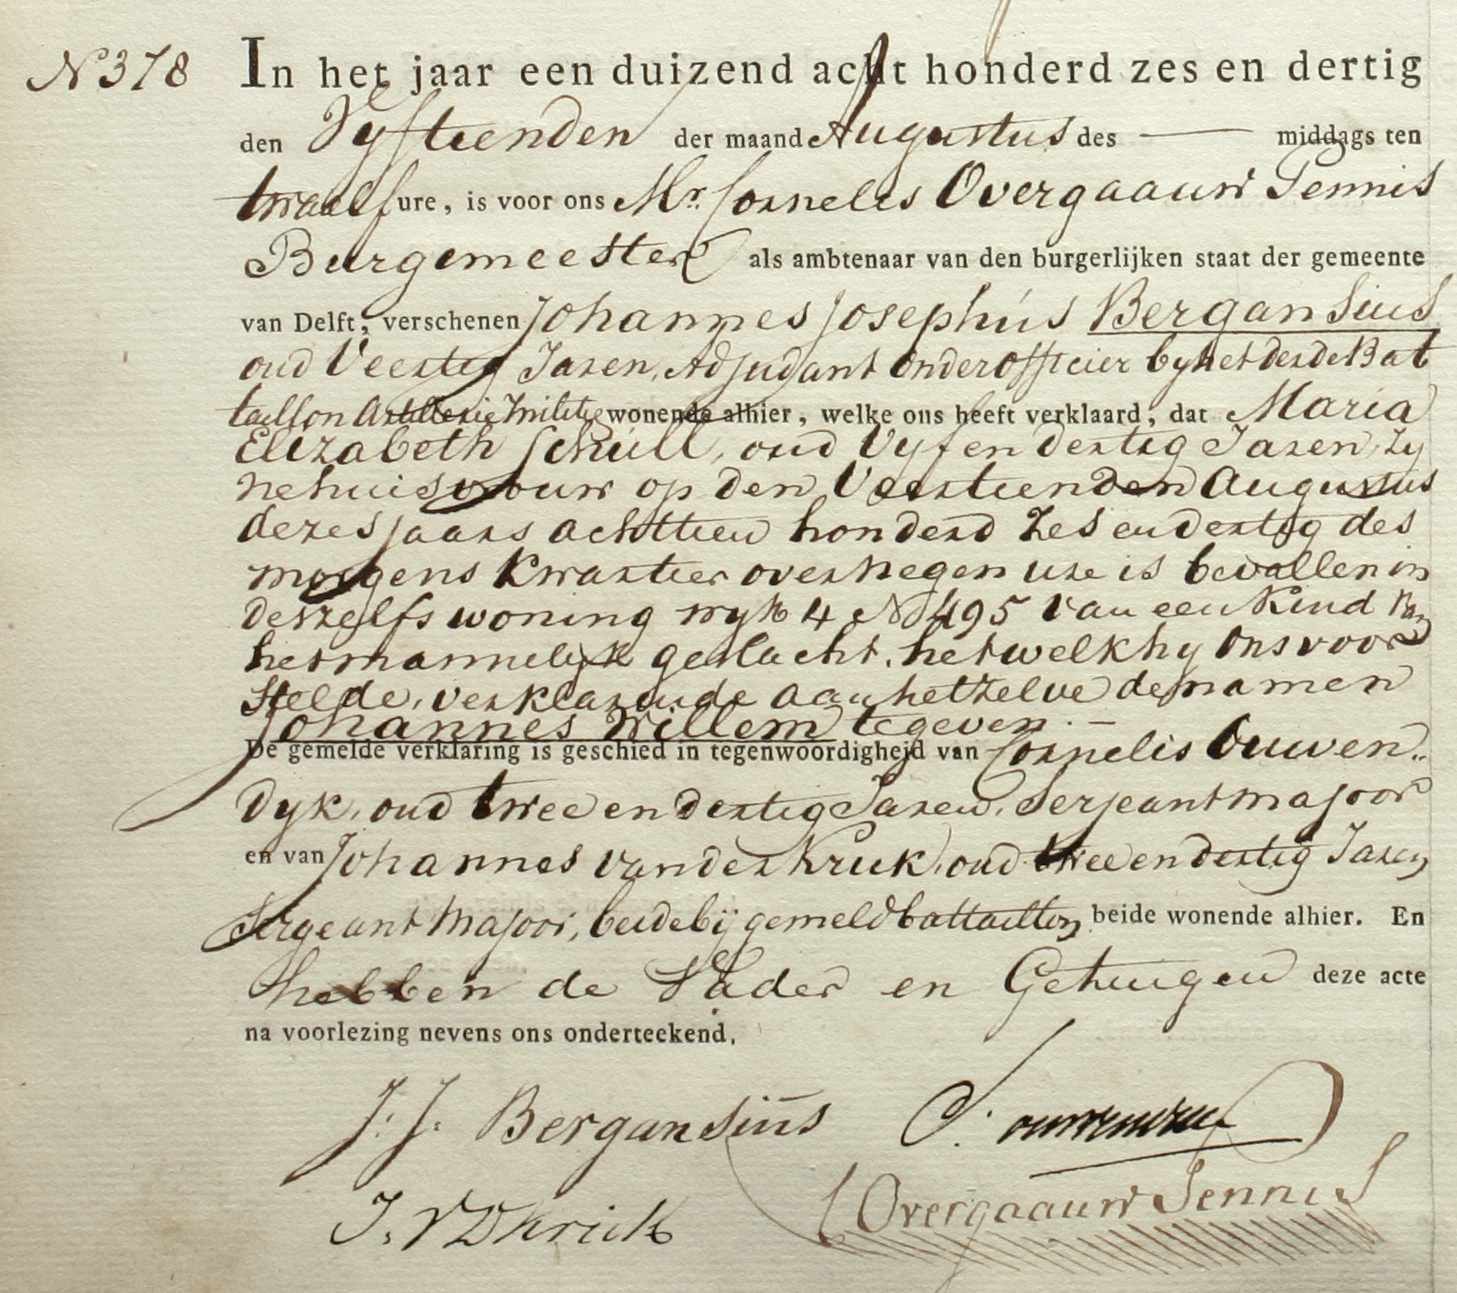 N 378 In het jaar een duizend acht honderd zes en dertig
den Vyftienden der maand Augustus des — middags ten
twaalf ure, is voor ons Mr. Cornelis Overgaauw Pennis
Burgemeester als ambtenaar van den burgerlijken staat der gemeente
van Delft, verschenen Johannes Josephús Bergansius
oud Veertig Jaren, Adjudant Onderofficier by het derde Bat
taillon Artillerie Militie wonende alhier, welke ons heeft verklaard, dat Maria
Elizabeth Schúll, oud Vyf en dertig Jaren, zy
nehuisvrouw op den Veertienden Augustus
dezes jaars achttien honderd zes en dertig des
morgens kwartier over negen ure is bevallen in
deszelfs woning wyk 4 No 495 van een Kind van
het mannelyk geslacht, hetwelk hy ons voor
stelde, verklarende aan hetzelve de namen
Johannes Willem te geven. —
De gemelde verklaring is geschied in tegenwoordigheid van Cornelis Ouwen„
dyk, oud twee en dertig Jaren, Serjeant majoor
en van Johannes van der Kruk, oud twee en dertig Jaren,
Sergeant Majoor, beide bij gemeld battaillon, beide wonende alhier. En
hebben de Vader en Getuigen deze acte
na voorlezing nevens ons onderteekend.
J: J. Bergansiüs C. ouwendyk
J. VD Kruk C Overgaauw Pennis